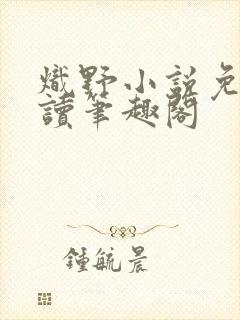 熾野小説免
讀筆趣閣
鍾毓晨